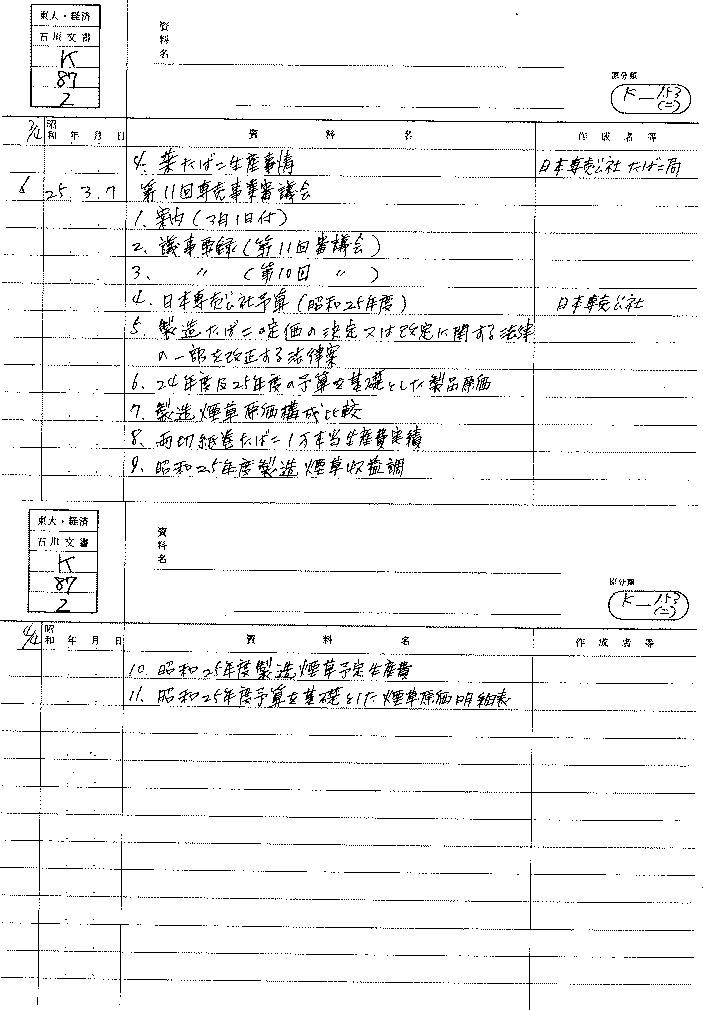 東大・経済
石川文書
K
87
2
資料名
原分類
K—153
(二)
3/4 昭和 年 月 日 資料名 作成者等
4. 葉たばこ生産事情 日本専売公社 たばこ局
6 25 3 7 第11回専売事業審議会
1. 案内(3月1日付)
2. 議事要録(第11回審議会)
3. 〃 (第10回 〃 )
4. 日本専売公社予算(昭和25年度) 日本専売公社
5. 製造たばこの定価の決定又は改定に関する法律
の一部を改正する法律案
6. 24年度及25年度の予算を基礎とした製品原価
7. 製造煙草原価構成比較
8. 両切紙巻たばこ1万本当生産費実積
9. 昭和25年度製造煙草収益調
東大・経済
石川文書
K
87
2
資料名
原分類
K—153
(二)
4/4 昭和 年 月 日 資料名 作成者等
10. 昭和25年度製造煙草予定生産費
11. 昭和25年度予算を基礎とした煙草原価明細表